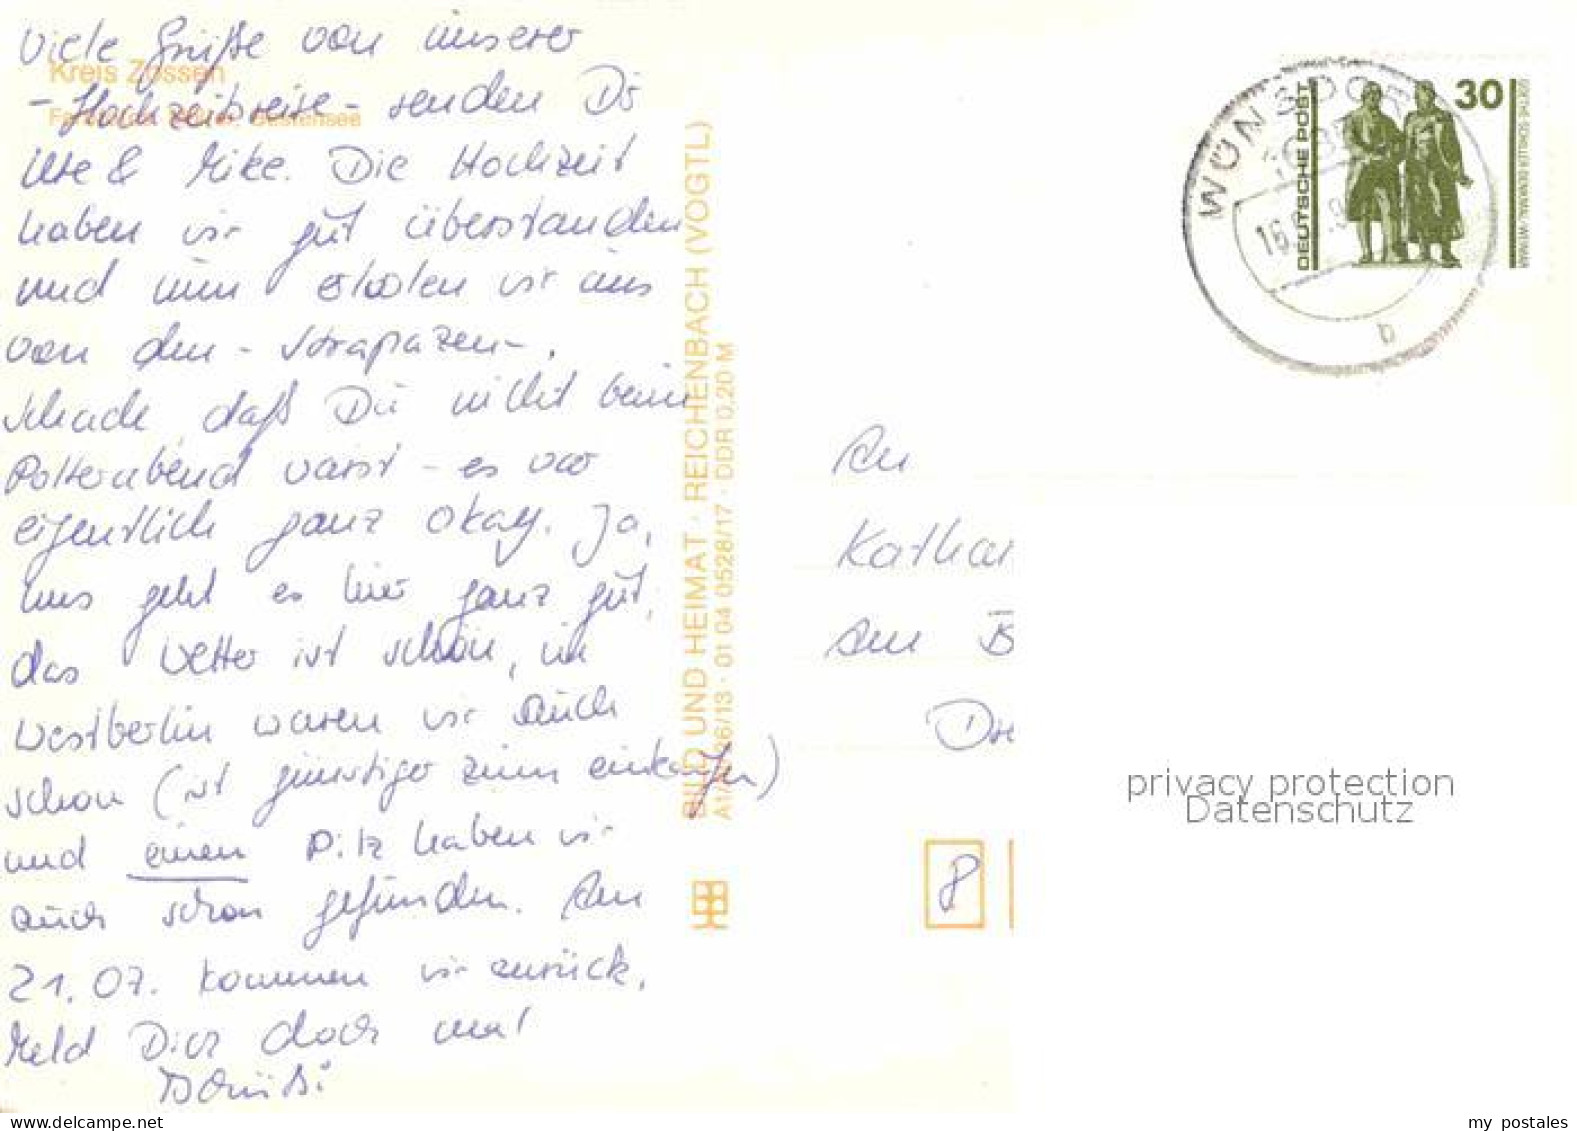 Viele Grüße von unserer
Kreis Zossen
- Hochzeitsreise - senden Dir
Ute & Mike. Die Hochzeit
haben wir gut überstanden
und nun erholen wir uns
von den - Strapazen -.
Schade, daß Du nicht beim
Polterabend warst - es war
eigentlich ganz okay. Ja,
uns geht es hier ganz gut,
das Wetter ist schön, in
Westberlin waren wir auch
schon (ist günstiger zum einkaufen)
und einen Pilz haben wir
auch schon gefunden. Am
21.07. kommen wir zurück.
Meld Dich doch mal
BILD UND HEIMAT · REICHENBACH (VOGTL)
01 04 0528/17 · DDR 0,20 M
WÜNSDORF
16
b
DEUTSCHE POST
30
GOETHE-SCHILLER-DENKMAL, WEIMAR
An
Kathar
Am B
Dre
privacy protection
Datenschutz
P
my postales